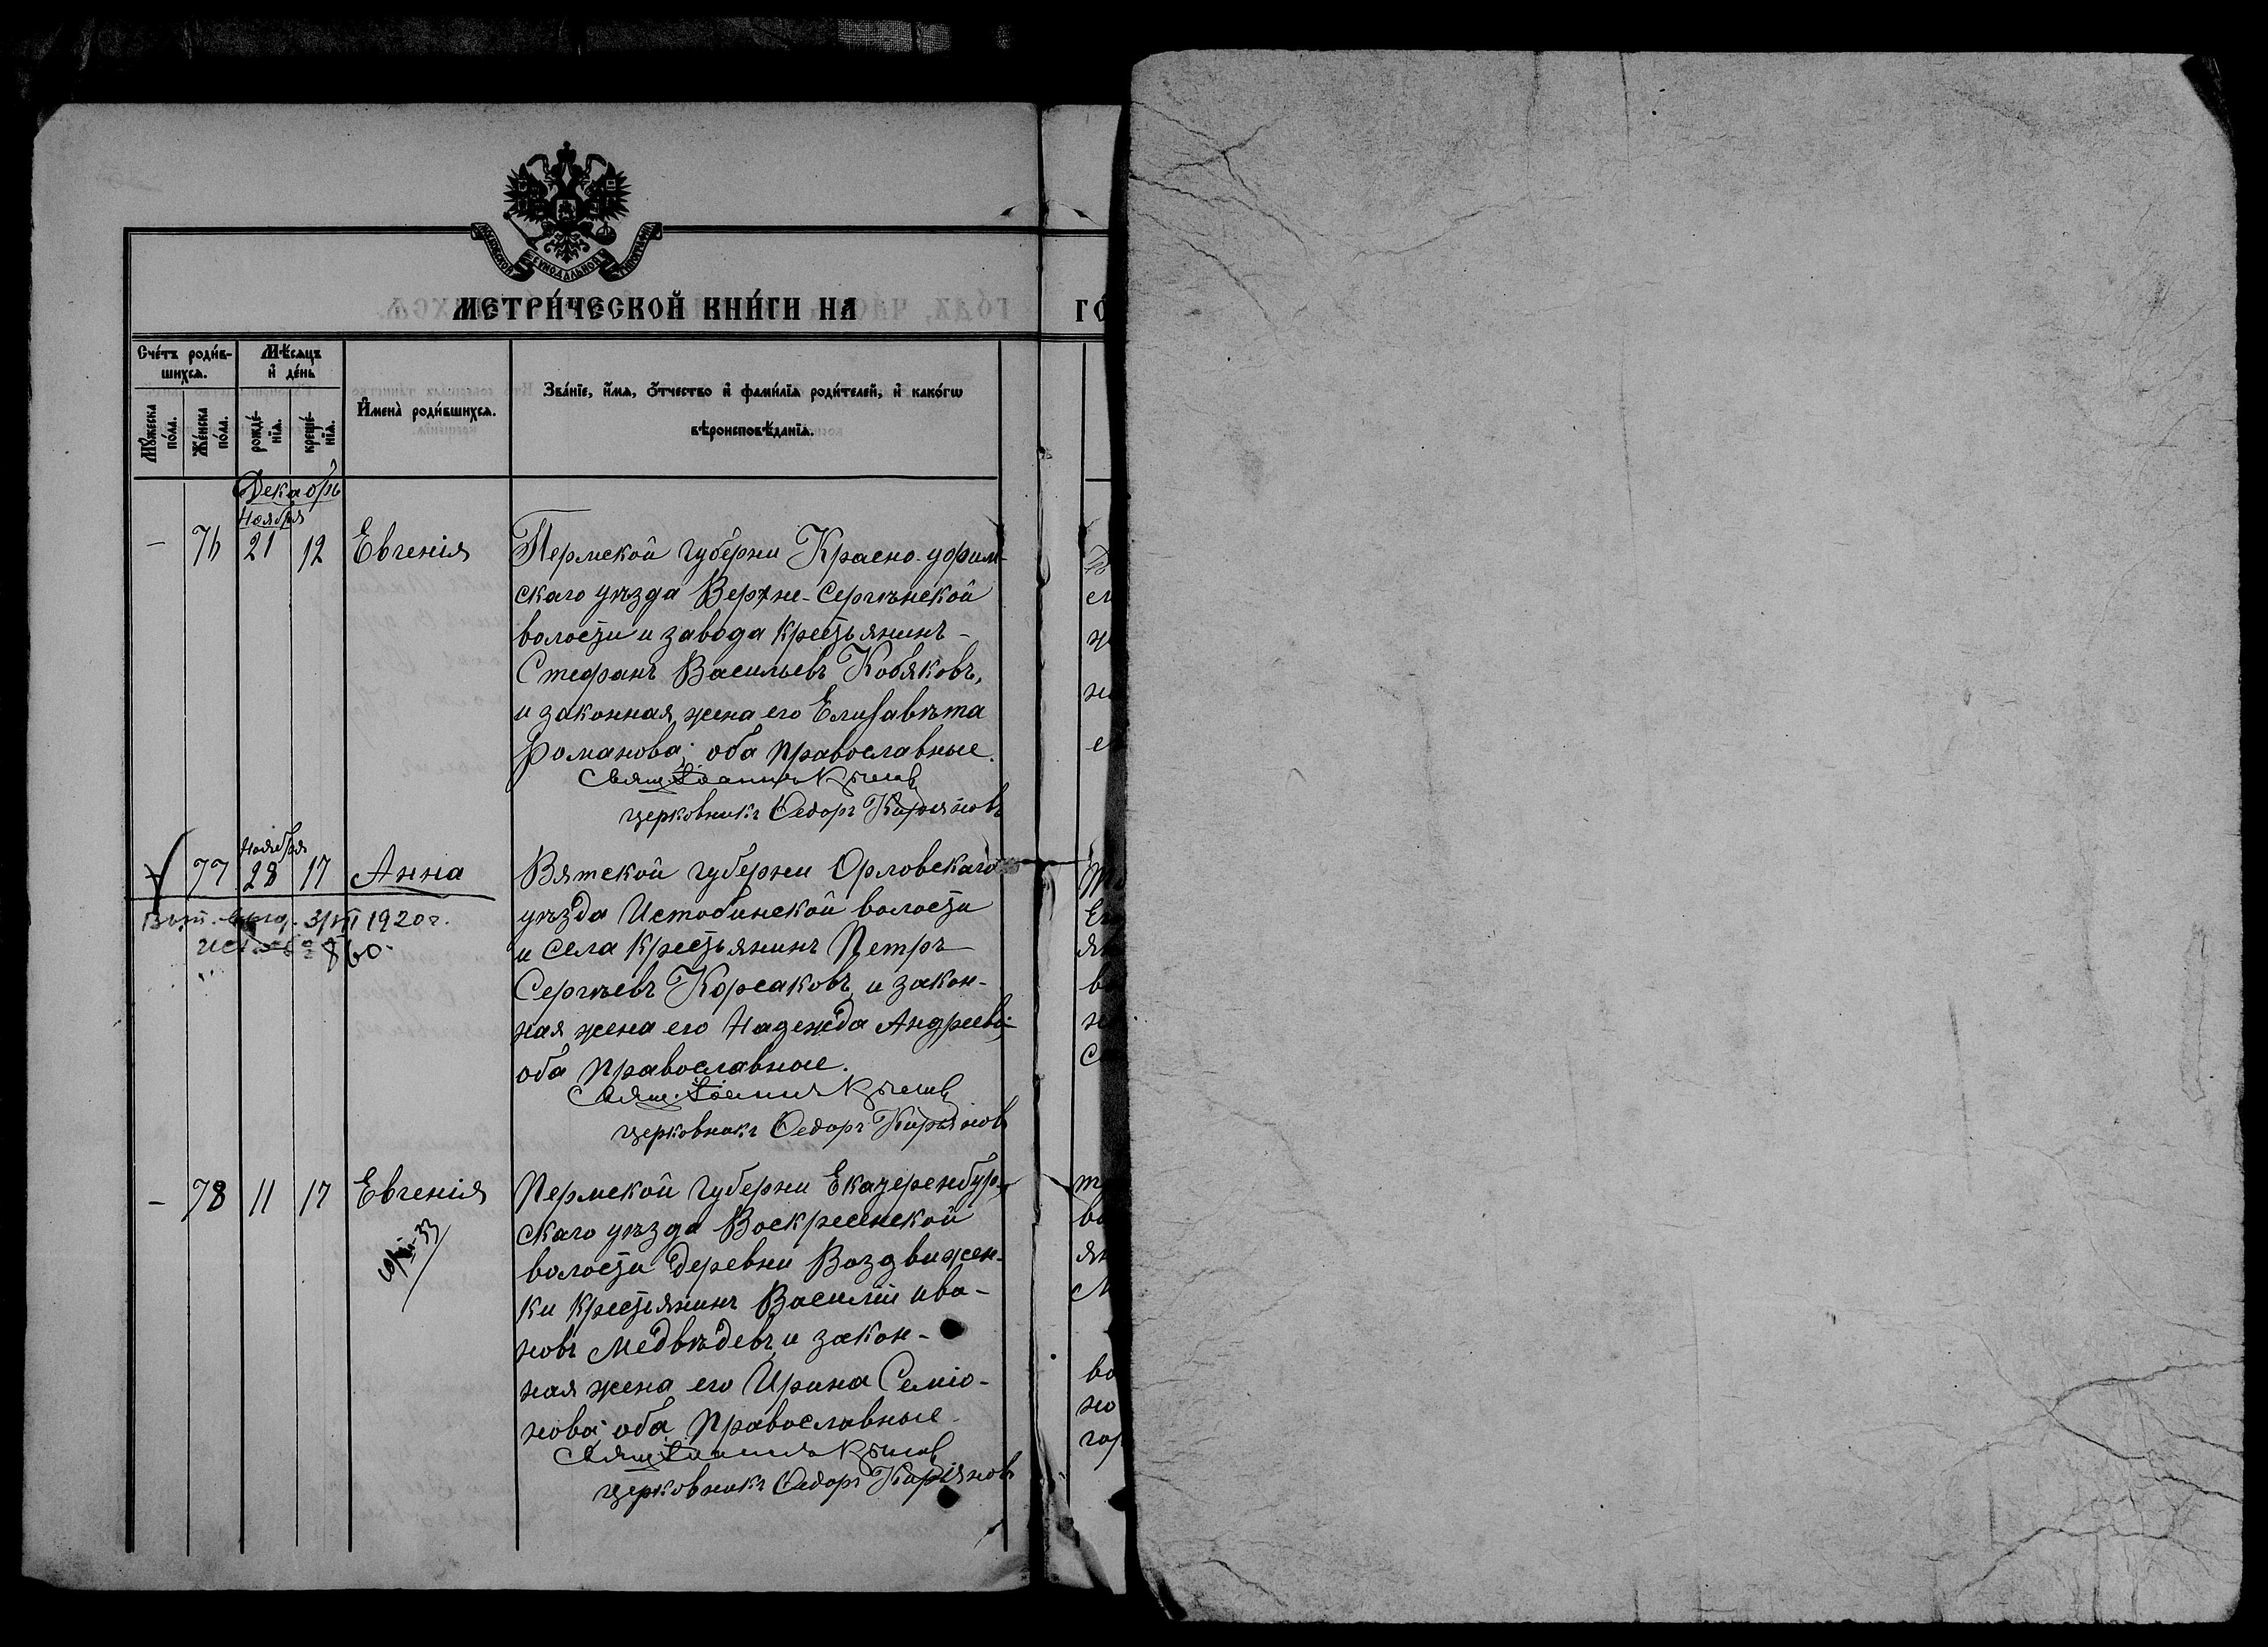 МОСКОВСКОЙ СѴНОДАЛЬНОЙ ТИПОГРАФІИ
МЕТРИ́ЧЕСКОЙ КНИ́ГИ НА
ГО́
Сче́тъ роди́в-
шихсѧ.
Мѣ́сѧцъ
и҆ де́нь
Мꙋ́жеска по́ла.
Же́нска по́ла.
рожде́-
нїѧ.
креще́-
нїѧ.
И҆мена̀ роди́вшихсѧ.
Зва́нїе, и҆́мѧ, ѻ҆́тчество и҆ фами́лїѧ роди́телей, и҆ како́гѡ
вѣроисповѣ́данїѧ.
Декабрь
Ноября
– 76 21 12 Евгенія
Пермской губерни Красно-уфим-
скаго уѣзда Верхне-Сергѣнской
волости и завода крестьянинъ –
Стефанъ Васильевъ Кобяковъ,
и законная жена его Елисавѣта
Романова; оба православные.
Свящ. Іоаннъ
церковникъ Ѳедоръ Кирьяновъ
Ноября
77 28 17 Анна
1920 г.
860.
Вятской губерни Орловскаго
уѣзда Истобинской волости
и села крестьянинъ Петръ
Сергѣевъ Корсаковъ, и закон-
ная жена его Надежда Андреева;
оба православные.
Свящ. Іоаннъ
церковникъ Ѳедоръ Кирьяновъ
– 78 11 17 Евгенія
Пермской губерни Екатеренбур-
скаго уѣзда Воскресенской
волости деревни Воздвижен-
ки крестьянинъ Василій Ива-
новъ Медвѣдевъ, и закон-
ная жена его Ирина Семіо-
нова; оба православные.
Свящ. Іоаннъ
церковникъ Ѳедоръ Кирьяновъ